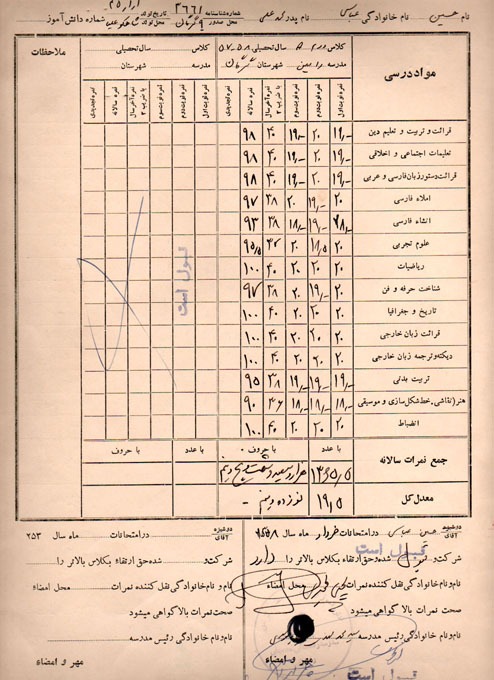 نام حسین نام خانوادگی عباسی نام پدر علی شماره شناسنامه ۳۶۶۱ محل صدور گرگان تاریخ تولد محل تولد شماره دانش آموز
مواد درسی
کلاس سال تحصیلی ۵۷-۵۸
مدرسه شهرستان گرگان
کلاس سال تحصیلی
مدرسه شهرستان
ملاحظات
نمره نوبت اول نمره نوبت دوم نمره نوبت سوم نمره آخر سال با ضریب ۲ نمره سالانه نمره تجدیدی
قرائت و تربیت و تعلیم دین ۱۹ ۲۰ ۱۹ ۴۰ ۹۸
تعلیمات اجتماعی و اخلاقی ۱۹ ۲۰ ۱۹ ۴۰ ۹۸
قرائت دستور زبان فارسی و عربی ۱۹ ۲۰ ۱۹ ۴۰ ۹۸
املاء فارسی ۲۰ ۱۹ ۲۰ ۳۸ ۹۷
انشاء فارسی ۱۸ ۱۹ ۱۸ ۳۸ ۹۳
علوم تجربی ۲۰ ۱۸/۵ ۲۰ ۳۷ ۹۵/۵
ریاضیات ۲۰ ۲۰ ۲۰ ۴۰ ۱۰۰
شناخت حرفه و فن ۲۰ ۱۹ ۲۰ ۳۸ ۹۷
تاریخ و جغرافیا ۲۰ ۲۰ ۲۰ ۴۰ ۱۰۰
قرائت زبان خارجی ۲۰ ۲۰ ۲۰ ۴۰ ۱۰۰
دیکته و ترجمه زبان خارجی ۲۰ ۲۰ ۲۰ ۴۰ ۱۰۰
تربیت بدنی ۱۹ ۱۹ ۱۹ ۳۸ ۹۵
هنر (نقاشی، خط شکل سازی و موسیقی) ۱۸ ۱۸ ۱۸ ۳۶ ۹۰
انضباط ۲۰ ۲۰ ۲۰ ۴۰ ۱۰۰
قبول است
با عدد با حروف با عدد با حروف
جمع نمرات سالانه
معدل کل ۱۹/۵ نوزده و نیم
دوشیزه آقای حسین عباسی در امتحانات خرداد ماه سال ۲۵۵۸
شرکت و قبول شده حق ارتقاء بکلاس بالاتر را دارد
قبول است
نام و نام خانوادگی نقل کننده نمرات محل امضاء
صحت نمرات بالا گواهی میشود
نام و نام خانوادگی رئیس مدرسه
مهر و امضاء
قبول است
دوشیزه آقای در امتحانات ماه سال ۲۵۳
شرکت و شده حق ارتقاء بکلاس بالاتر را
نام و نام خانوادگی نقل کننده نمرات محل امضاء
صحت نمرات بالا گواهی میشود
نام و نام خانوادگی رئیس مدرسه
مهر و امضاء